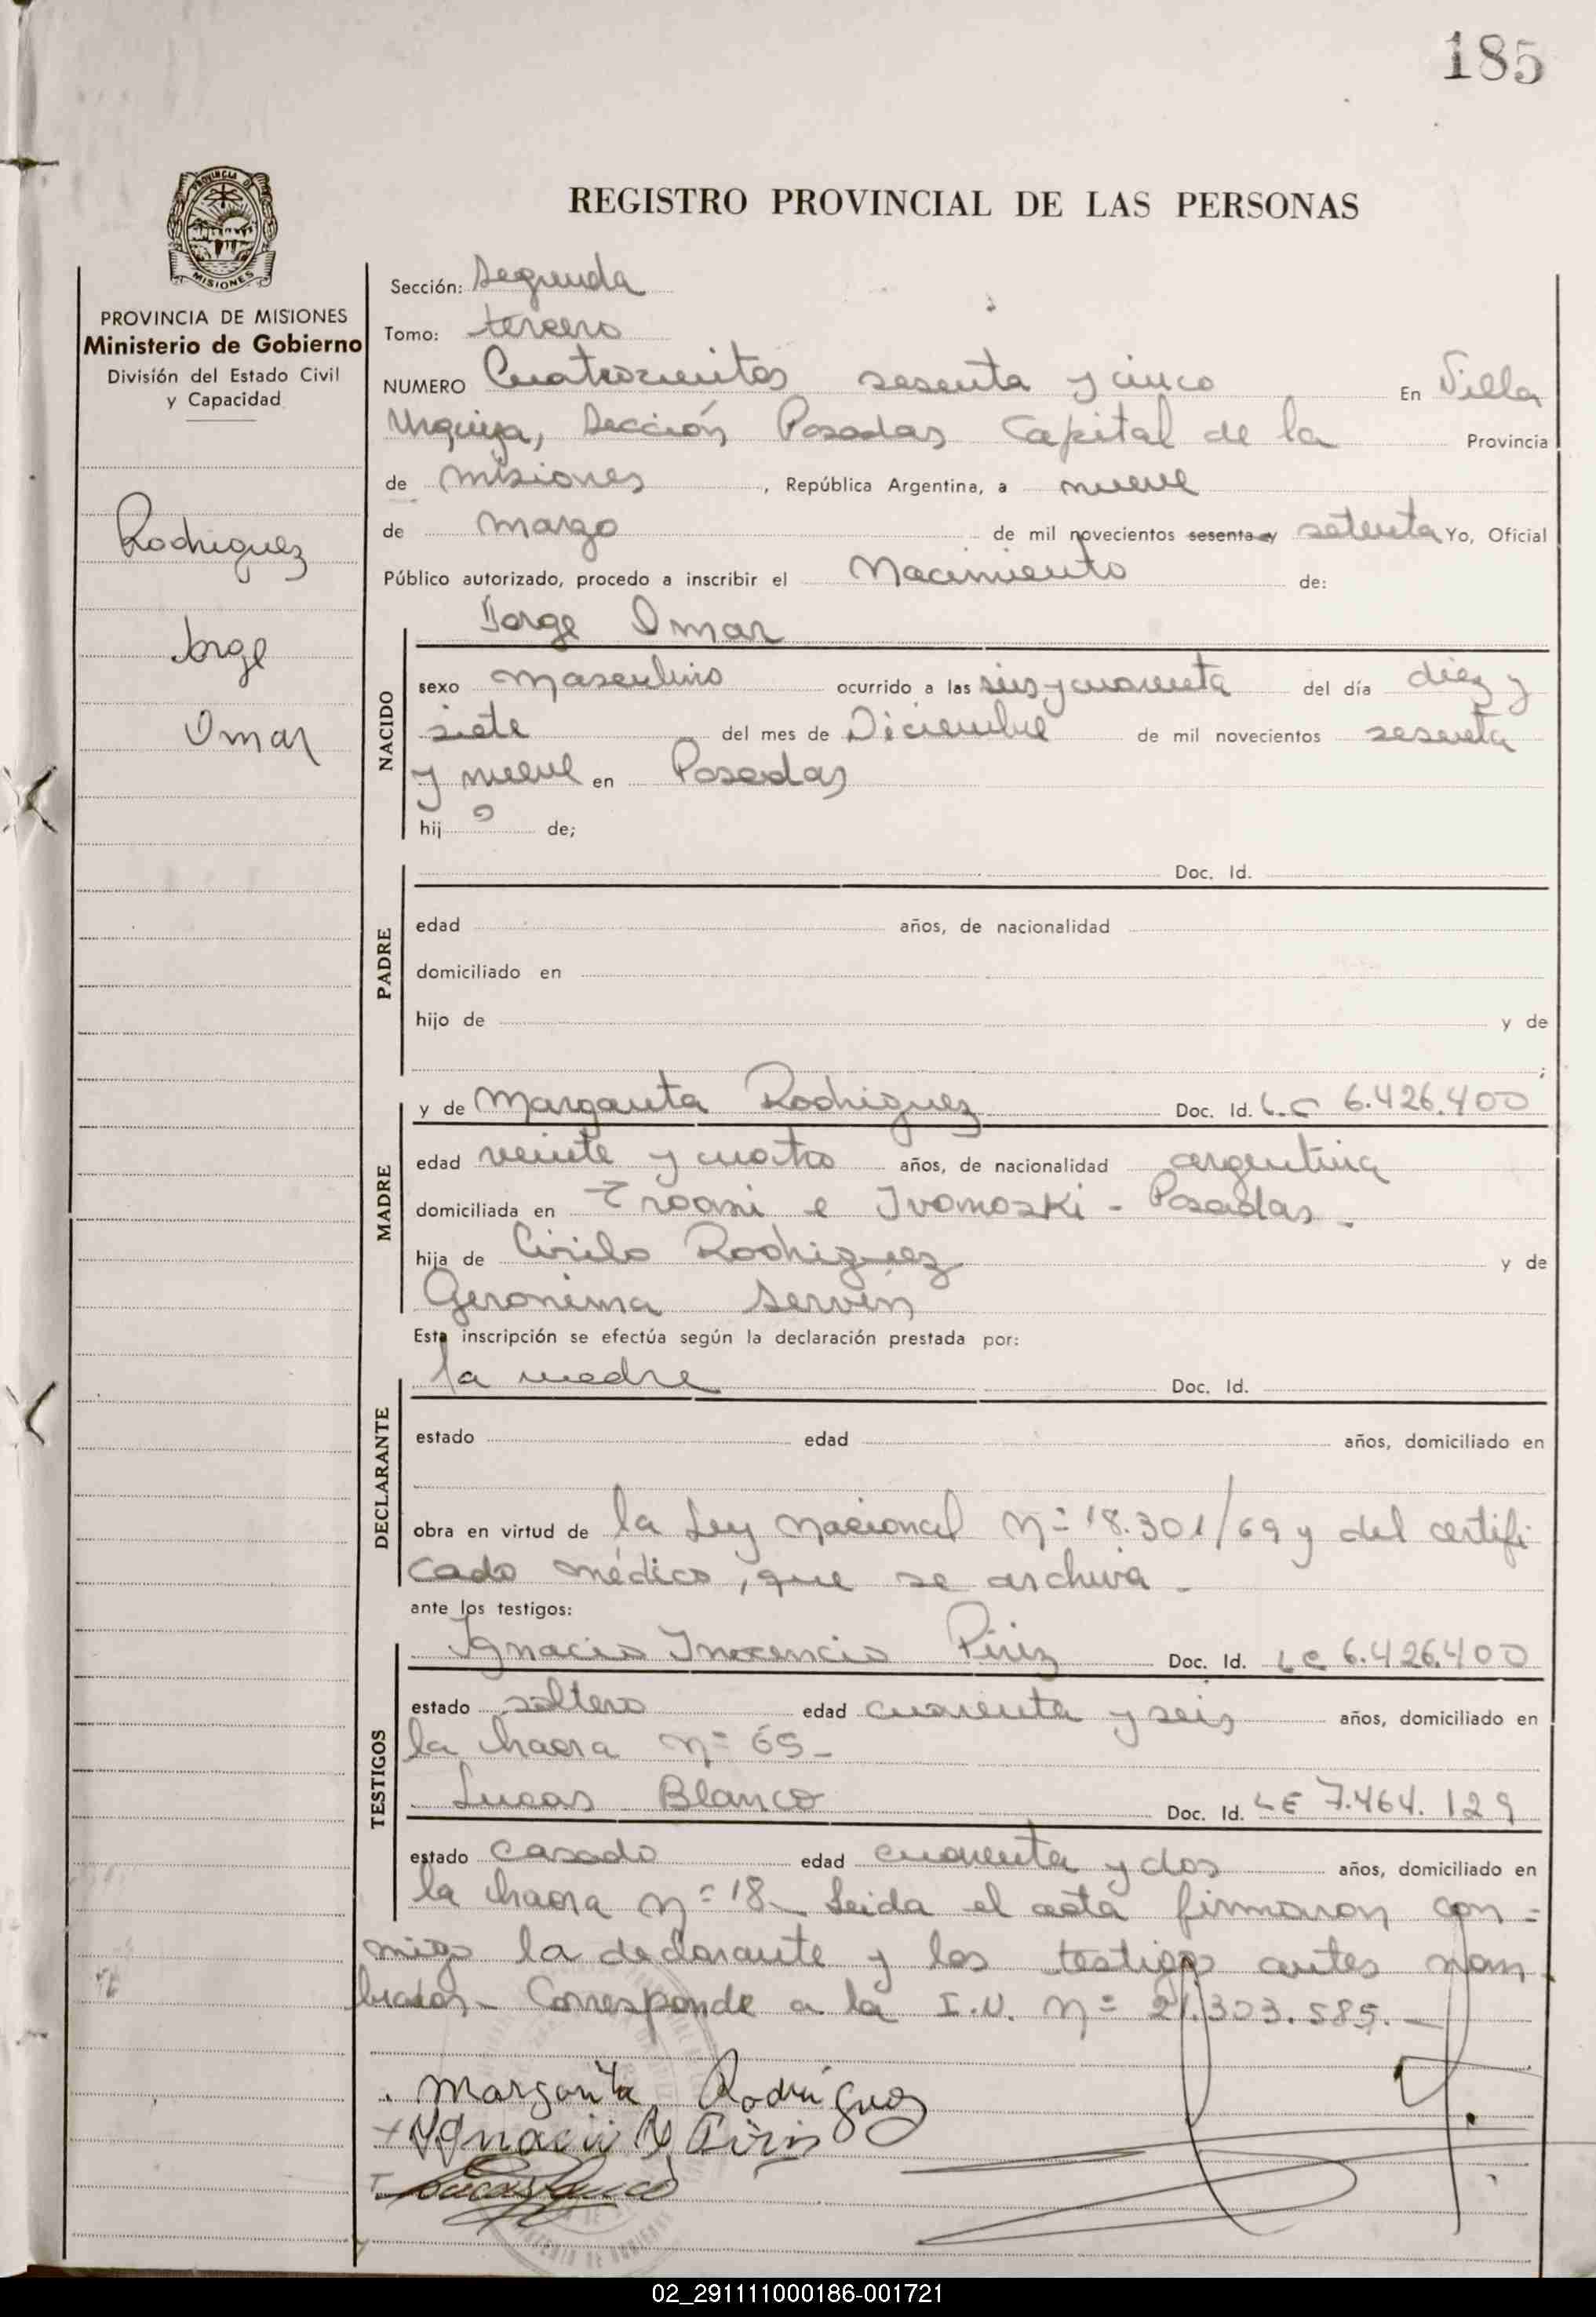 185
REGISTRO PROVINCIAL DE LAS PERSONAS
PROVINCIA DE MISIONES
Ministerio de Gobierno
División del Estado Civil
y Capacidad
Rodriguez
Jorge
Omar
Sección: Segunda
Tomo: tercero
NUMERO Cuatrocientos sesenta y cinco En Villa
Urquiza, Sección Posadas Capital de la Provincia
de misiones, República Argentina, a nueve
de marzo de mil novecientos sesenta y setenta Yo, Oficial
Público autorizado, procedo a inscribir el Nacimiento de:
NACIDO
Jorge Omar
sexo masculino ocurrido a las seis y cuarenta del día diez y
siete del mes de Diciembre de mil novecientos sesenta
y nueve en Posadas
hijo de;
PADRE
Doc. Id.
edad años, de nacionalidad
domiciliado en
hijo de y de
;
MADRE
y de Margarita Rodriguez Doc. Id. L.C 6.426.400
edad veinte y cuatro años, de nacionalidad argentina
domiciliada en e Ivanoski - Posadas.
hija de Cirilo Rodriguez y de
Geronima Servin
Esta inscripción se efectúa según la declaración prestada por:
DECLARANTE
la madre Doc. Id.
estado edad años, domiciliado en
obra en virtud de la Ley Nacional Nº 18.301/69 y del certifi-
cado médico, que se archiva.
ante los testigos:
TESTIGOS
Ignacio Inocencio Piriz Doc. Id. LE 6.426.400
estado soltero edad cuarenta y seis años, domiciliado en
la chacra Nº 65-
Lucas Blanco Doc. Id. LE 7.464.129
estado casado edad cuarenta y dos años, domiciliado en
la chacra Nº 18- Leida el acta firmaron con=
migo la declarante y los testigo antes nom
brados- Corresponde a la I.N. Nº 21.303.585.-
Margarita Rodriguez
02_291111000186-001721